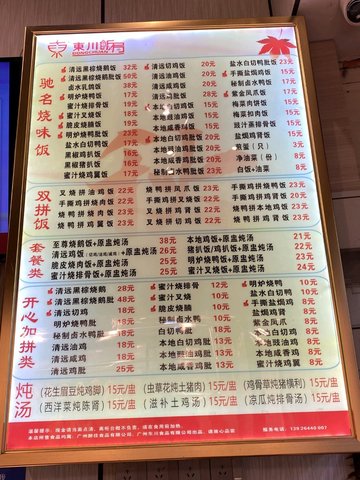 東川飯店
驰名烧味饭
清远黑棕烧鹅饭 32元
清远黑棕烧鹅髀饭 50元
卤水乳鸽饭 38元
明炉烧鸭饭 17元
蜜汁烧排骨饭 19元
蜜汁叉烧饭 18元
脆皮烧腩饭 19元
明炉烧鸭髀饭 23元
本地鸡髀饭 23元
黑椒鸡扒饭 16元
黑椒猪扒饭 16元
蜜汁烧鸡翼饭 17元
清远切鸡饭 20元
清远豉油鸡饭 20元
清远咸香鸡饭 20元
本地切鸡饭 15元
本地豉油鸡饭 15元
本地咸香鸡饭 15元
白切鸭饭 17元
本地白切鸡髀饭 23元
本地豉油鸡髀饭 23元
本地咸香鸡髀饭 23元
秘制卤水鸭髀饭 22元
盐水白切鸭髀饭 23元
手撕盐焗鸡饭 15元
秘制卤水鸭饭 15元
紫金凤爪饭 17元
梅菜肉饼饭 15元
梅菜扣肉饭 15元
豉汁蒸排骨饭 15元
盐焗鸡肾饭 15元
煎蛋（只） 3元
净油菜（份） 8元
白饭+油菜 8元
双拼饭
叉烧拼油鸡饭 22元
叉烧拼切鸡饭 22元
烧鸭拼油鸡饭 22元
烧鸭拼切鸡饭 22元
烧鸭拼凤爪饭 23元
手撕鸡拼叉烧饭 22元
烧鸭拼叉烧饭 23元
烧鸭拼鸡肾饭 23元
手撕鸡拼烧鸭饭 22元
手撕鸡拼鸡肾饭 22元
切鸡拼鸡肾饭 22元
叉烧拼鸡肾饭 23元
套餐类
至尊烧鹅饭+原盅炖汤 38元
清远鸡饭+原盅炖汤 26元
脆皮烧肉饭+原盅炖汤 25元
蜜汁烧排骨饭+原盅炖汤 25元
本地鸡饭+原盅炖汤 21元
猪扒/鸡扒饭+原盅炖汤 22元
明炉烧鸭饭+原盅炖汤 23元
蜜汁叉烧饭+原盅炖汤 24元
开心加拼类
清远黑棕烧鹅 28元
清远黑棕烧鹅髀 48元
清远切鸡 18元
明炉烧鸭髀 20元
秘制卤水鸭髀 20元
清远油鸡 18元
清远咸鸡 18元
清远鸡髀 25元
蜜汁烧排骨 12元
蜜汁叉烧 10元
脆皮烧腩 10元
秘制卤水鸭 8元
白切鸭髀 18元
本地白切鸡髀 18元
本地豉油鸡髀 18元
本地咸香鸡髀 18元
明炉烧鸭 10元
盐水白切鸭 10元
手撕盐焗鸡 8元
盐焗鸡肾 8元
紫金凤爪 8元
本地切鸡 8元
本地豉油鸡 8元
本地咸香鸡 8元
蜜汁烧鸡翼 8元
炖汤
（花生眉豆炖鸡脚）15元/盅
（西洋菜炖陈肾）15元/盅
（虫草花炖土猪肉）15元/盅
（滋补土鸡汤）15元/盅
（鸡骨草炖猪横利）15元/盅
（凉瓜炖排骨汤）15元/盅